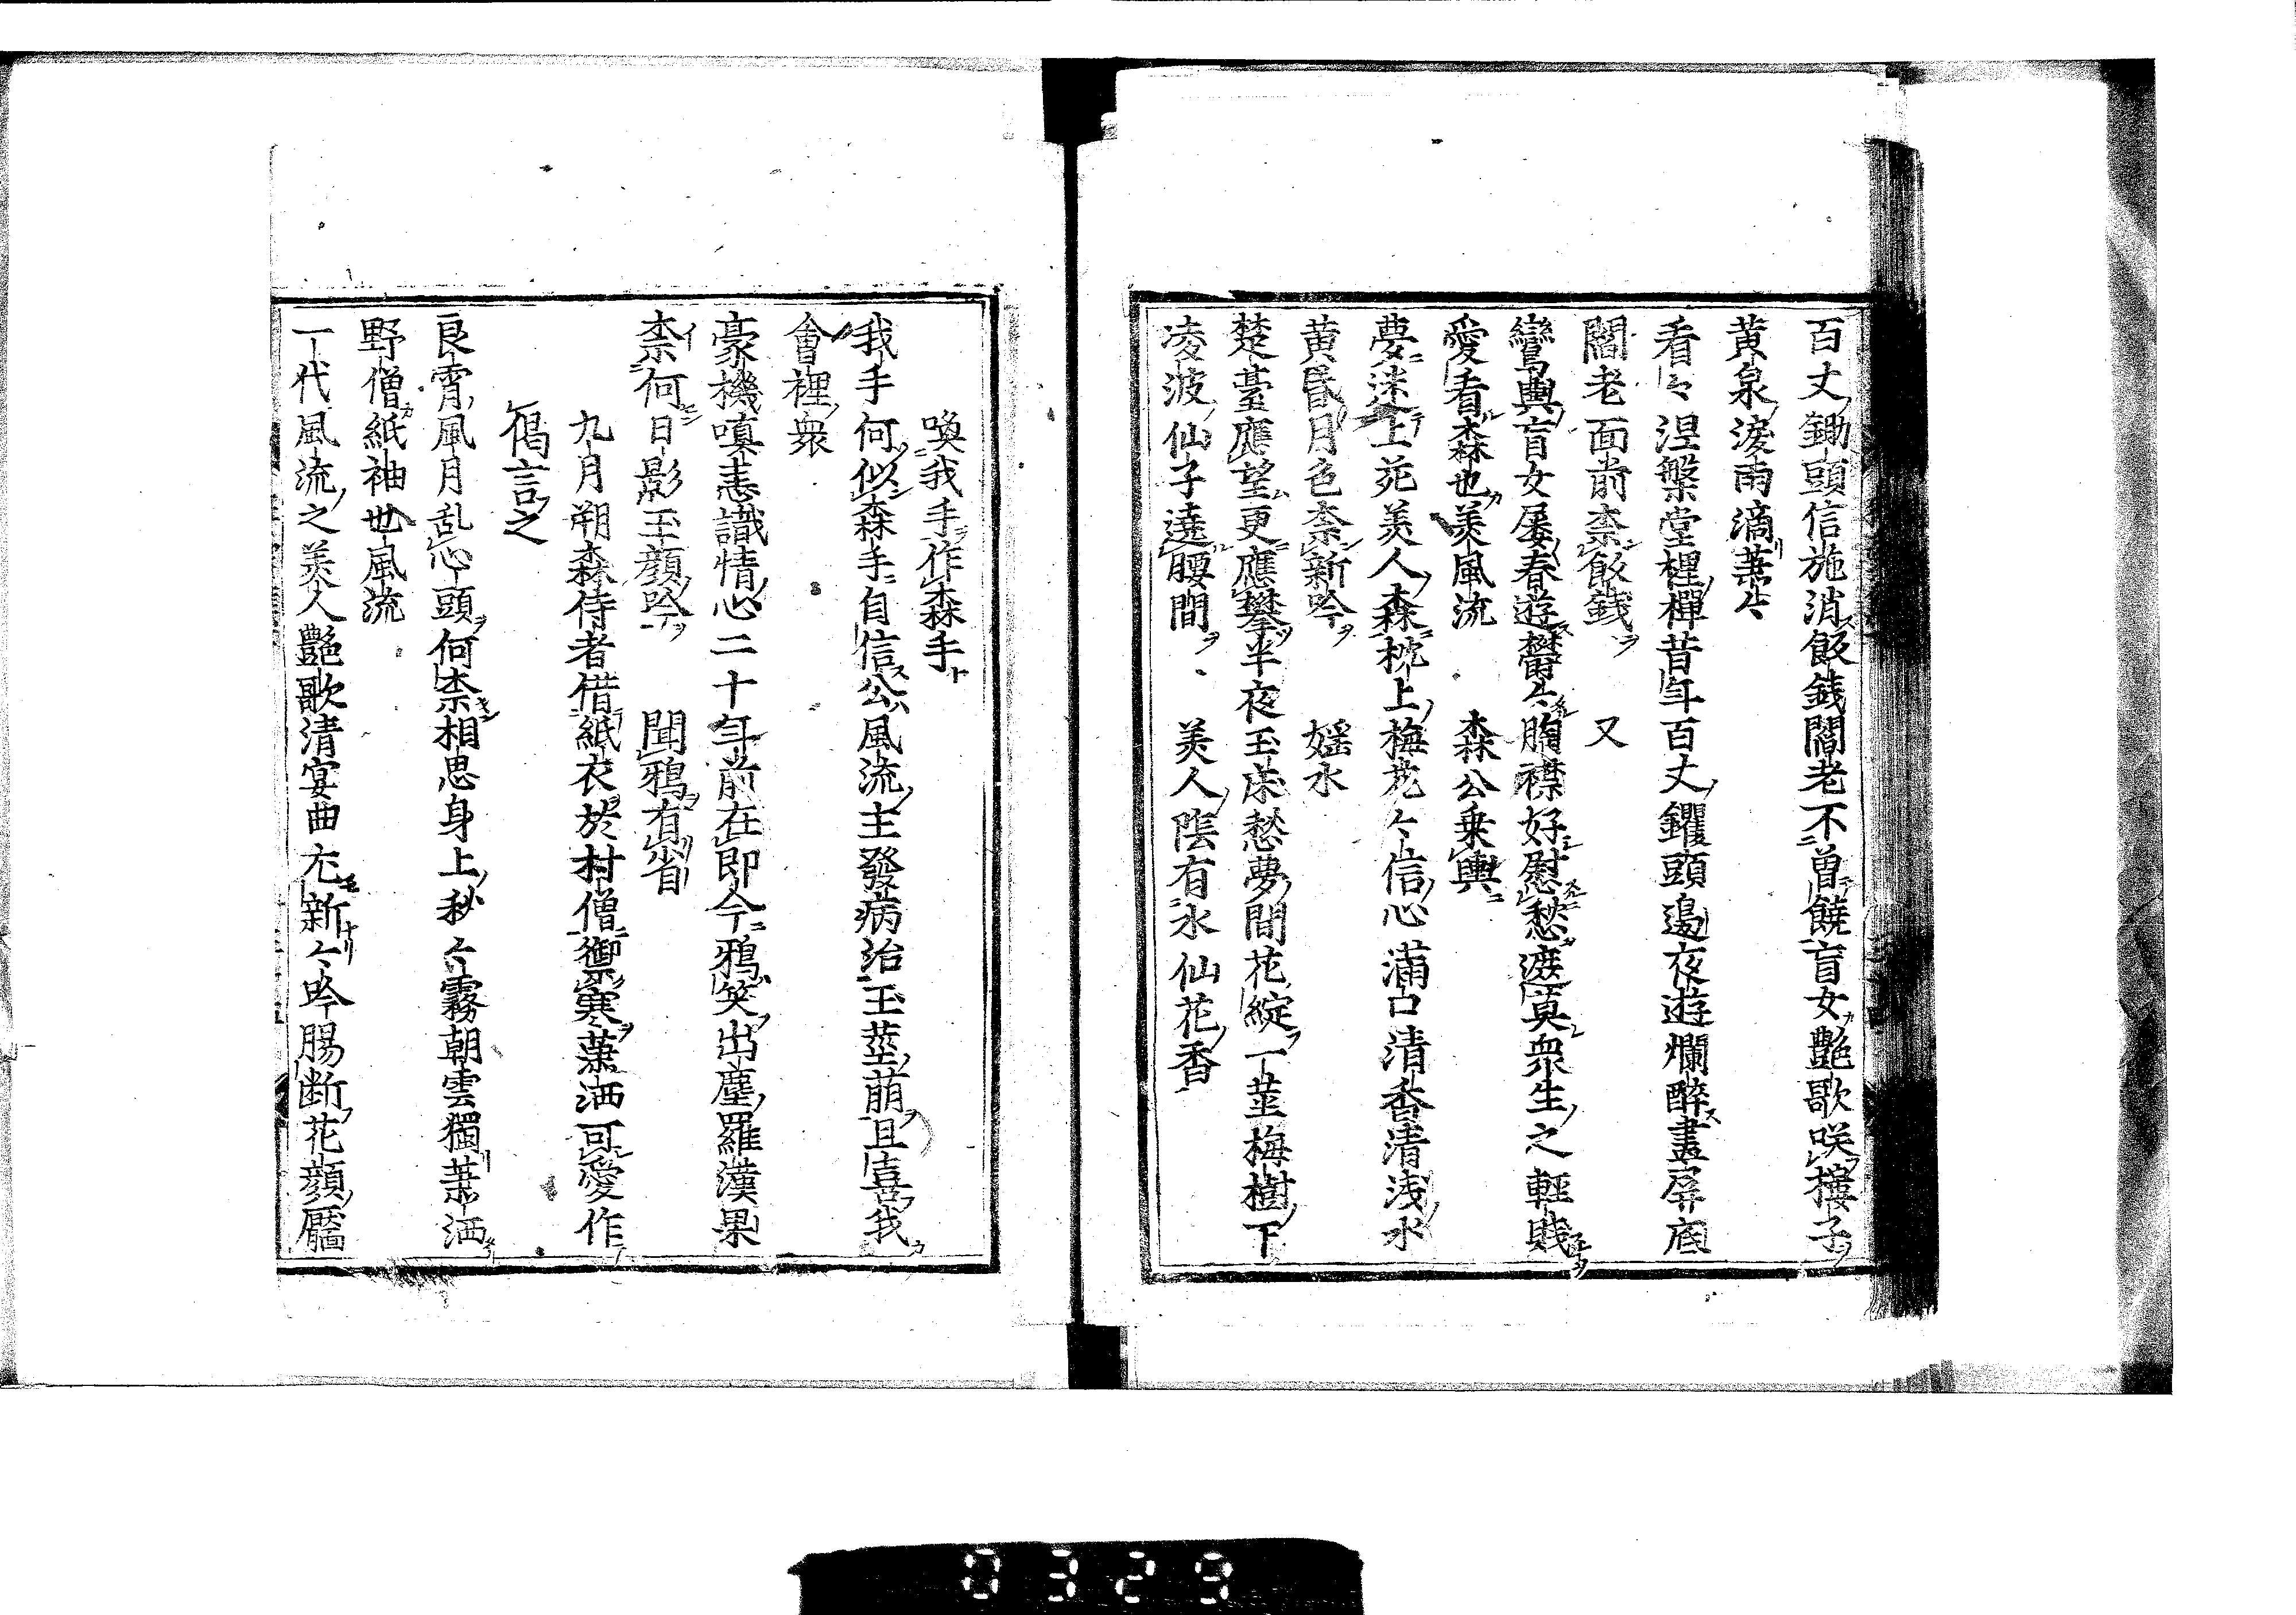 百丈鋤頭信施消飯銭閻老不曽饒盲女艶歌咲楼子
黄泉涙雨滴蕭々
看々涅槃堂裡禪昔年百丈钁頭邉夜遊爛醉畫屏底
閻老面前柰飯銭　又
鸞輿盲女屡春遊欝々胸襟好慰愁遮莫衆生之輕賎
愛看森也美風流　森公乗輿
夢迷上苑美人森枕上梅花々信心滿口清香清浅水
黄昏月色柰新吟　婬水
楚臺應望更應攀半夜玉床愁夢間花綻一莖梅樹下
凌波仙子遶腰間　美人陰有水仙花香
喚我手作森手
我手何似森手自信公風流主發病治玉莖萠且喜我
會裡衆
豪機嗔恚識情心二十年前在即今鴉笑出塵羅漢果
柰何日影玉顔吟　聞鴉有省
九月朔森侍者借紙衣於村僧禦寒蕭洒可愛作
偈言之
良宵風月乱心頭何柰相思身上秋々霧朝雲獨蕭洒
野僧紙袖也風流
一代風流之美人艶歌清宴曲尤新々吟腸断花顔靨
0329